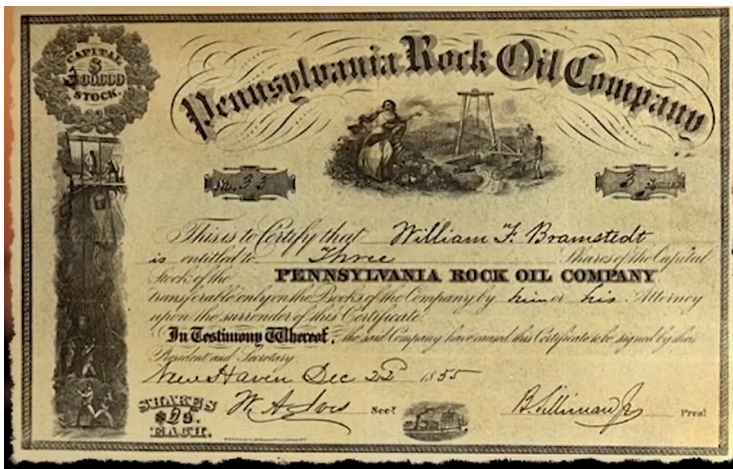 CAPITAL
$
300,000
STOCK.
Pennsylvania Rock Oil Company
No. 33
3 Shares
This is to Certify that William F. Bramstedt
is entitled to Three Shares of the Capital
Stock of the PENNSYLVANIA ROCK OIL COMPANY
transferable only on the Books of the Company by him or his Attorney
upon the surrender of this Certificate.
In Testimony Whereof, the said Company have caused this Certificate to be signed by their
President and Secretary.
New Haven Dec 22d 1855
SHARES
$25.
EACH.
W. A. Ives Secy.
B. Silliman Jr. Prest